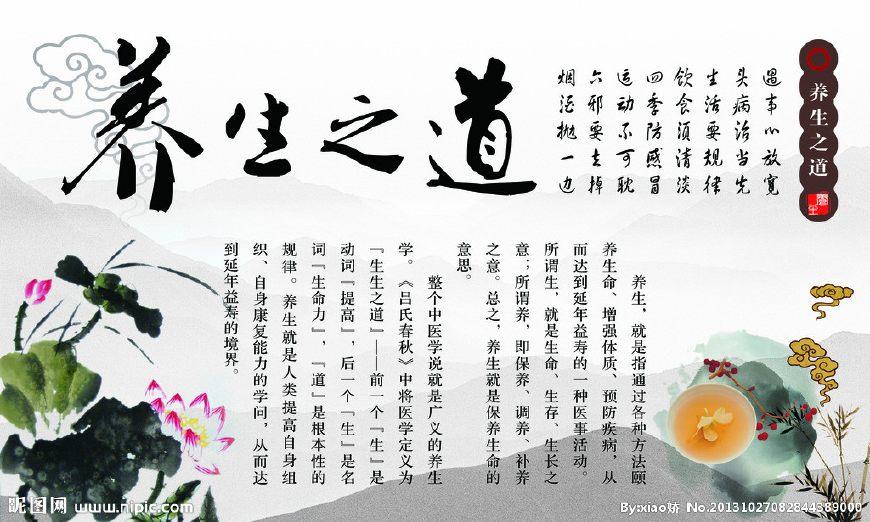 养生之道
养生之道
遇事心放宽
头病治当先
生活要规律
饮食须清淡
四季防感冒
运动不可耽
六邪要去掉
烟酒抛一边
养生，就是指通过各种方法颐
养生命、增强体质、预防疾病，从
而达到延年益寿的一种医事活动。
所谓生，就是生命、生存、生长之
意；所谓养，即保养、调养、补养
之意。总之，养生就是保养生命的
意思。
整个中医学说就是广义的养生
学。《吕氏春秋》中将医学定义为
『生生之道』——前一个『生』是
动词『提高』，后一个『生』是名
词『生命力』，『道』是根本性的
规律。养生就是人类提高自身组
织、自身康复能力的学问，从而达
到延年益寿的境界。
昵图网 www.nipic.com
By:xiao娇 No.20131027082844389000